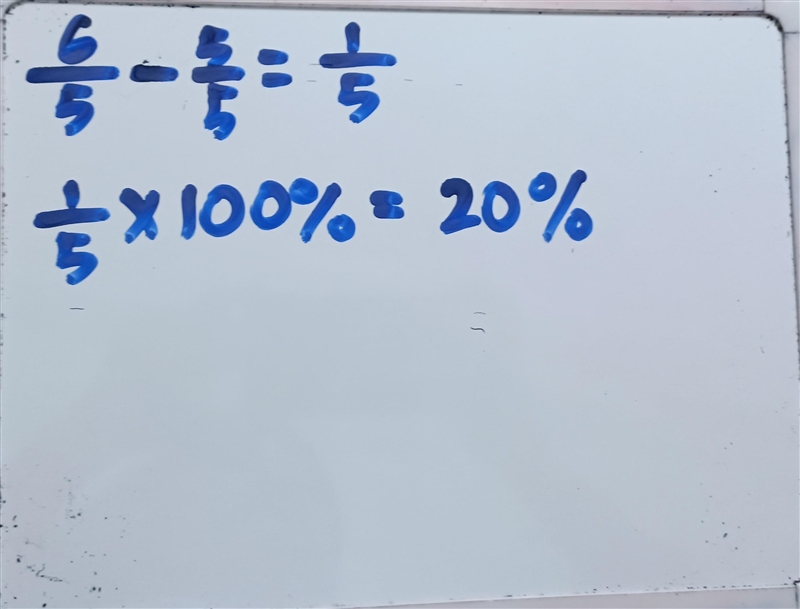 6/5 - 5/5 = 1/5
1/5 x 100% = 20%